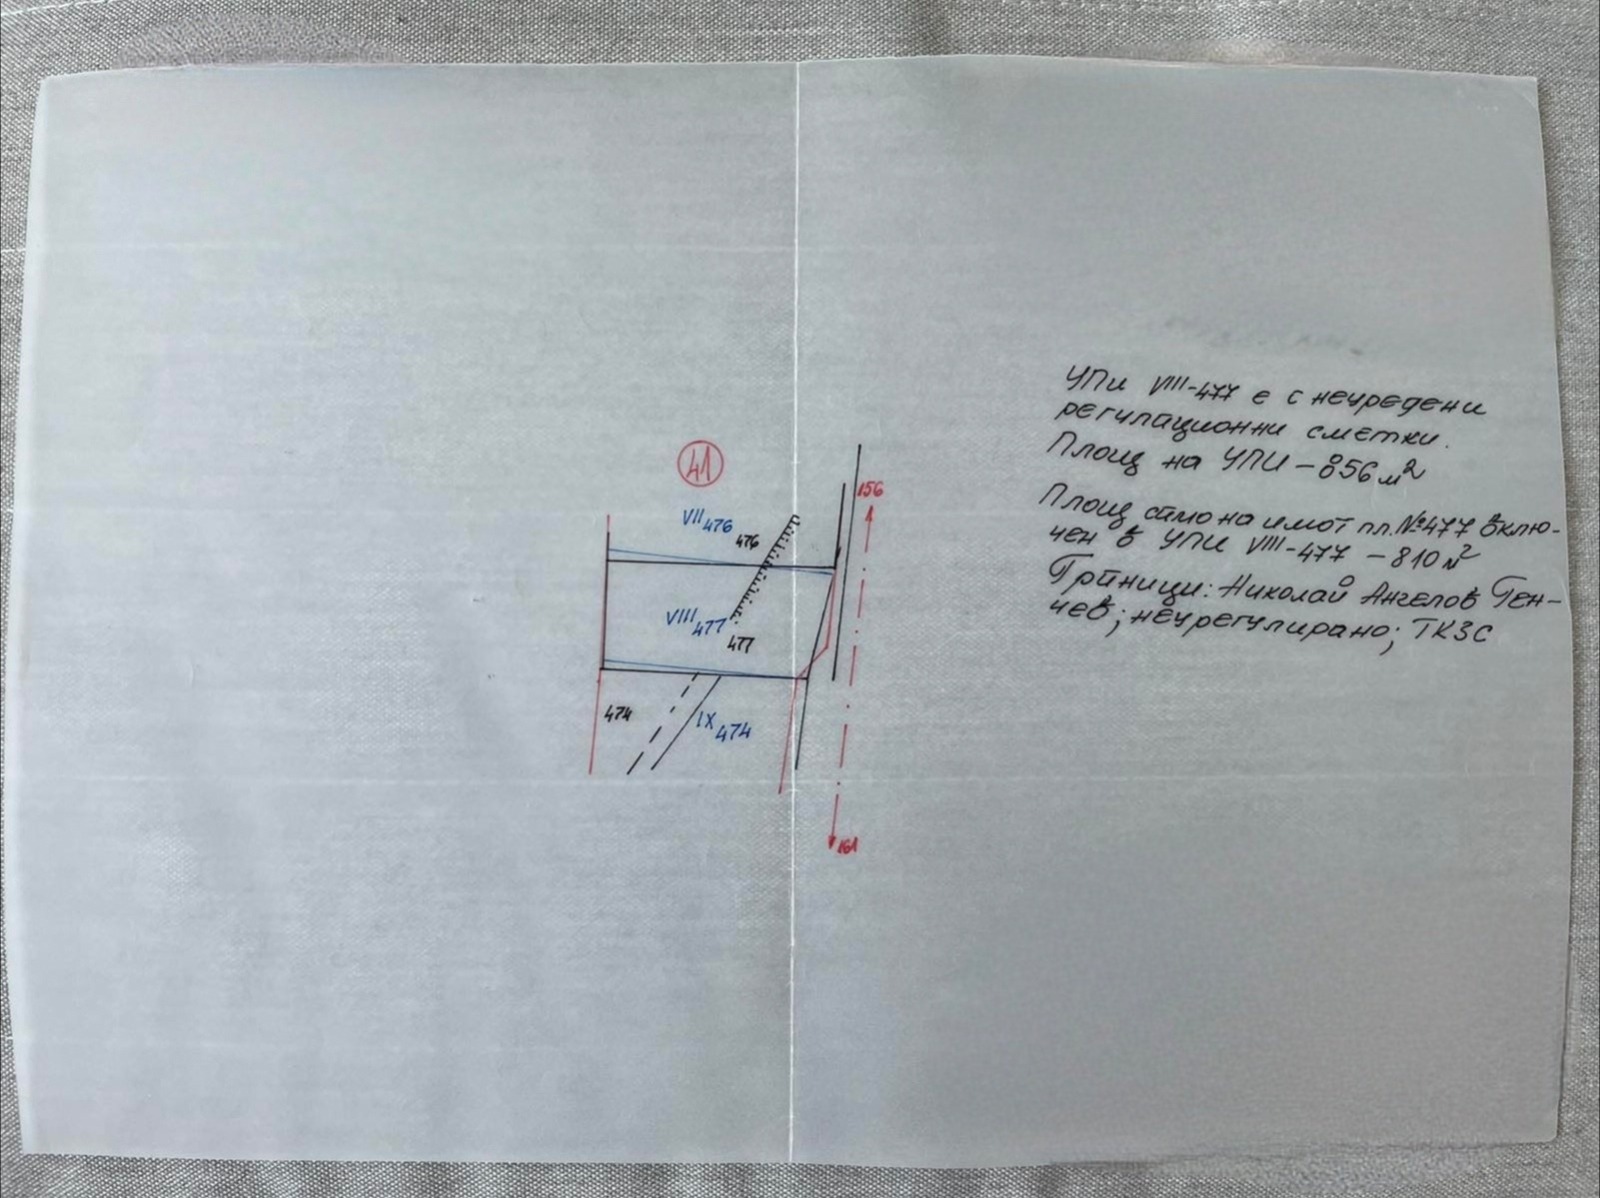 41
156
VII 476
476
VIII 477
477
474
IX 474
161
УПИ VIII-477 е с неуредени
регулационни сметки.
Площ на УПИ – 856 м²
Площ само на имот пл.№477 вклю-
чен в УПИ VIII-477 – 810 м²
Граници: Николай Ангелов Ген-
чев; неурегулирано; ТКЗС